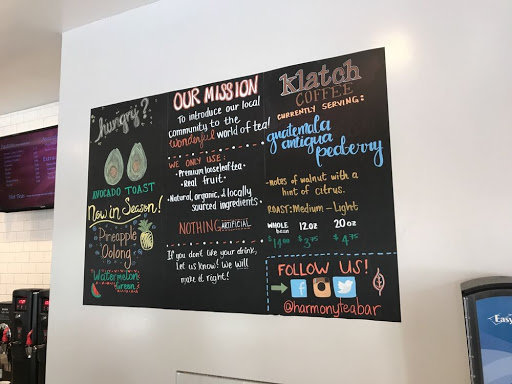 hungry?
AVOCADO TOAST
Now in Season!
Pineapple
Oolong
Watermelon
Green
OUR MISSION
To introduce our local
community to the
wonderful world of tea!
WE ONLY USE:
• Premium looseleaf tea •
• Real fruit •
• Natural, organic, & locally
sourced ingredients •
NOTHING ARTIFICIAL
If you don't like your drink,
let us know! We will
make it right!
Klatch
COFFEE
CURRENTLY SERVING:
guatemala
antigua
peaberry
-notes of walnut with a
hint of citrus.
ROAST: Medium - Light
WHOLE bean 12oz 20oz
$14.00 $3.75 $4.75
FOLLOW US!
@harmonyteabar
Easy